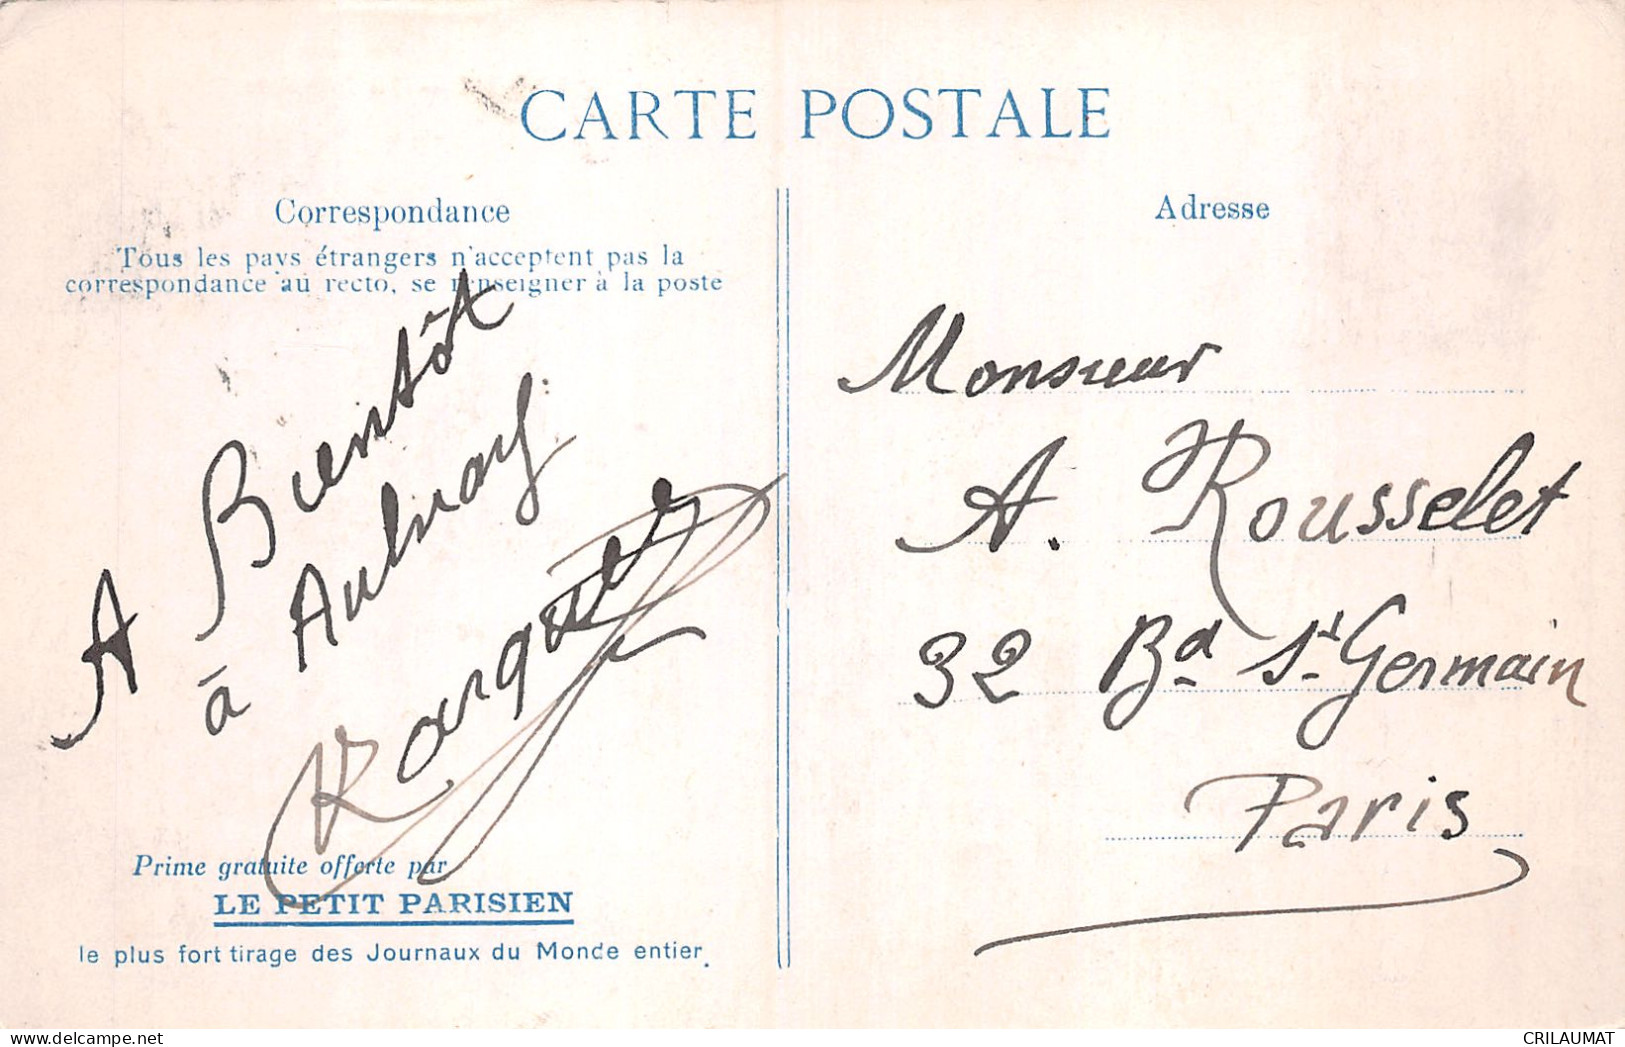 CARTE POSTALE
Correspondance
Tous les pays étrangers n'acceptent pas la
correspondance au recto, se renseigner à la poste
A Bientôt
à Aulnay
Prime gratuite offerte par
LE PETIT PARISIEN
le plus fort tirage des Journaux du Monde entier.
Adresse
Monsieur
A. Rousselet
32 Bd St Germain
Paris
CRILAUMAT